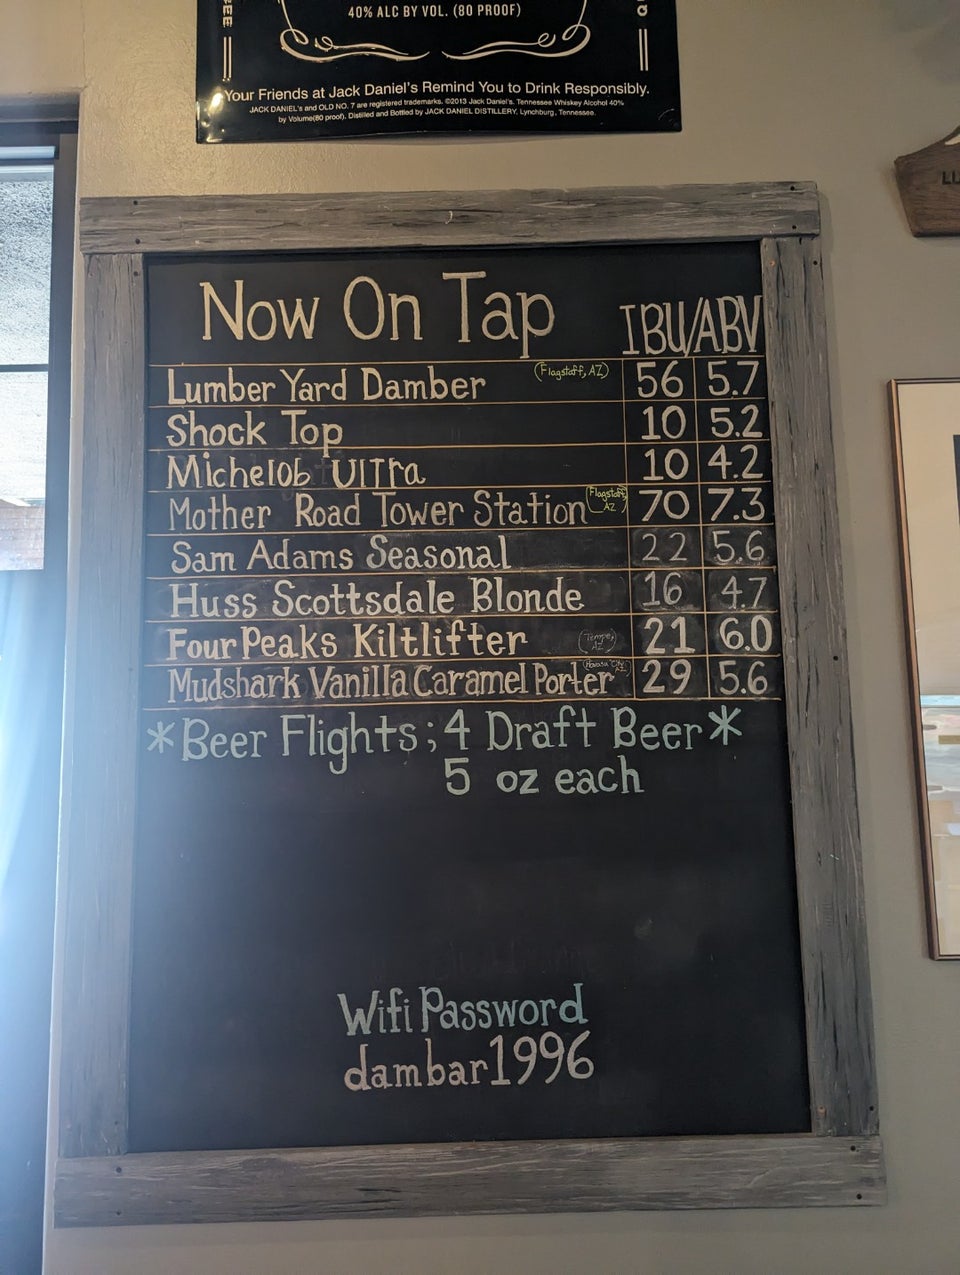 40% ALC BY VOL. (80 PROOF)
Your Friends at Jack Daniel's Remind You to Drink Responsibly.
JACK DANIEL's and OLD NO. 7 are registered trademarks. ©2013 Jack Daniel's. Tennessee Whiskey Alcohol 40%
by Volume(80 proof). Distilled and Bottled by JACK DANIEL DISTILLERY, Lynchburg, Tennessee.
Now On Tap IBU/ABV
Lumber Yard Damber (Flagstaff, AZ) 56 5.7
Shock Top 10 5.2
Michelob Ultra 10 4.2
Mother Road Tower Station (Flagstaff, AZ) 70 7.3
Sam Adams Seasonal 22 5.6
Huss Scottsdale Blonde 16 4.7
Four Peaks Kiltlifter (Tempe, AZ) 21 6.0
Mudshark Vanilla Caramel Porter (Havasu City AZ) 29 5.6
*Beer Flights; 4 Draft Beer*
5 oz each
Wifi Password
dambar1996